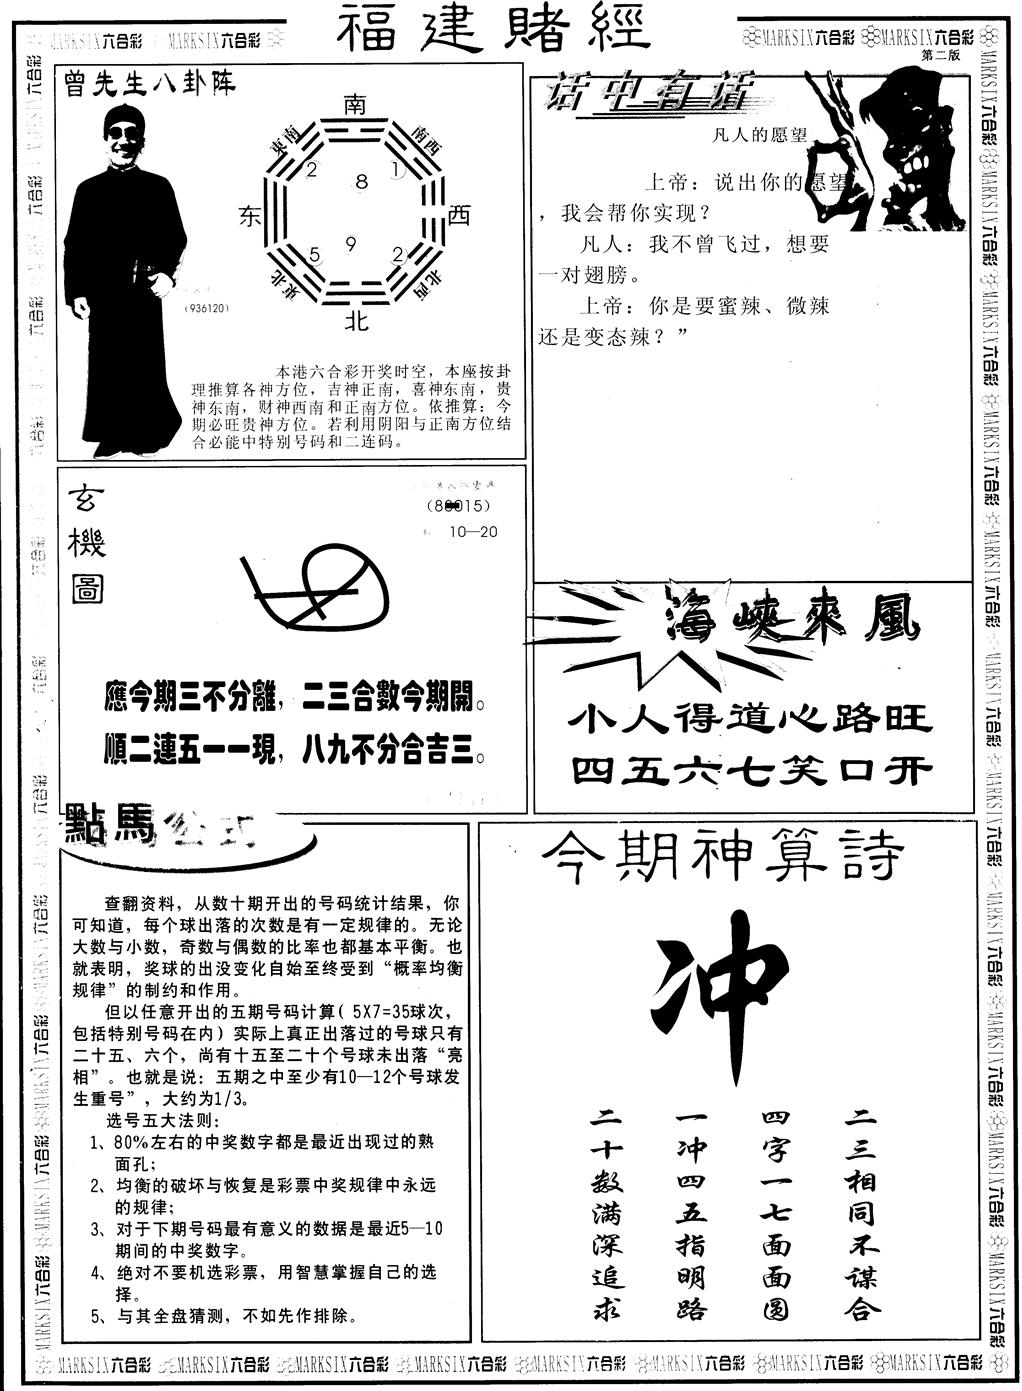 福建賭經
MARKSIX六合彩 MARKSIX六合彩
MARKSIX六合彩 MARKSIX六合彩
第二版
曾先生八卦阵
南
東南
南西
2
1
8
东
西
5
9
2
東北
北西
北
(936120)
本港六合彩开奖时空，本座按卦
理推算各神方位，吉神正南，喜神东南，贵
神东南，财神西南和正南方位。依推算：今
期必旺贵神方位。若利用阴阳与正南方位结
合必能中特别号码和二连码。
话中有话
凡人的愿望
上帝：说出你的愿望
，我会帮你实现？
凡人：我不曾飞过，想要
一对翅膀。
上帝：你是要蜜辣、微辣
还是变态辣？”
玄機圖
10—20
應今期三不分離，二三合數今期開。
順二連五一一現，八九不分合吉三。
海峽來風
小人得道心路旺
四五六七笑口开
點馬公式
查翻资料，从数十期开出的号码统计结果，你
可知道，每个球出落的次数是有一定规律的。无论
大数与小数，奇数与偶数的比率也都基本平衡。也
就表明，奖球的出没变化自始至终受到“概率均衡
规律”的制约和作用。
但以任意开出的五期号码计算( 5X7=35球次，
包括特别号码在内）实际上真正出落过的号球只有
二十五、六个，尚有十五至二十个号球未出落“亮
相”。也就是说：五期之中至少有10—12个号球发
生重号”，大约为1/3。
选号五大法则：
1、80%左右的中奖数字都是最近出现过的熟
面孔；
2、均衡的破坏与恢复是彩票中奖规律中永远
的规律；
3、对于下期号码最有意义的数据是最近5—10
期间的中奖数字。
4、绝对不要机选彩票，用智慧掌握自己的选
择。
5、与其全盘猜测，不如先作排除。
今期神算詩
冲
二三相同不谋合
四字一七面面圆
一冲四五指明路
二十数满深追求
MARKSIX六合彩 MARKSIX六合彩 MARKSIX六合彩 MARKSIX六合彩 MARKSIX六合彩 MARKSIX六合彩 MARKSIX六合彩 MARKSIX六合彩